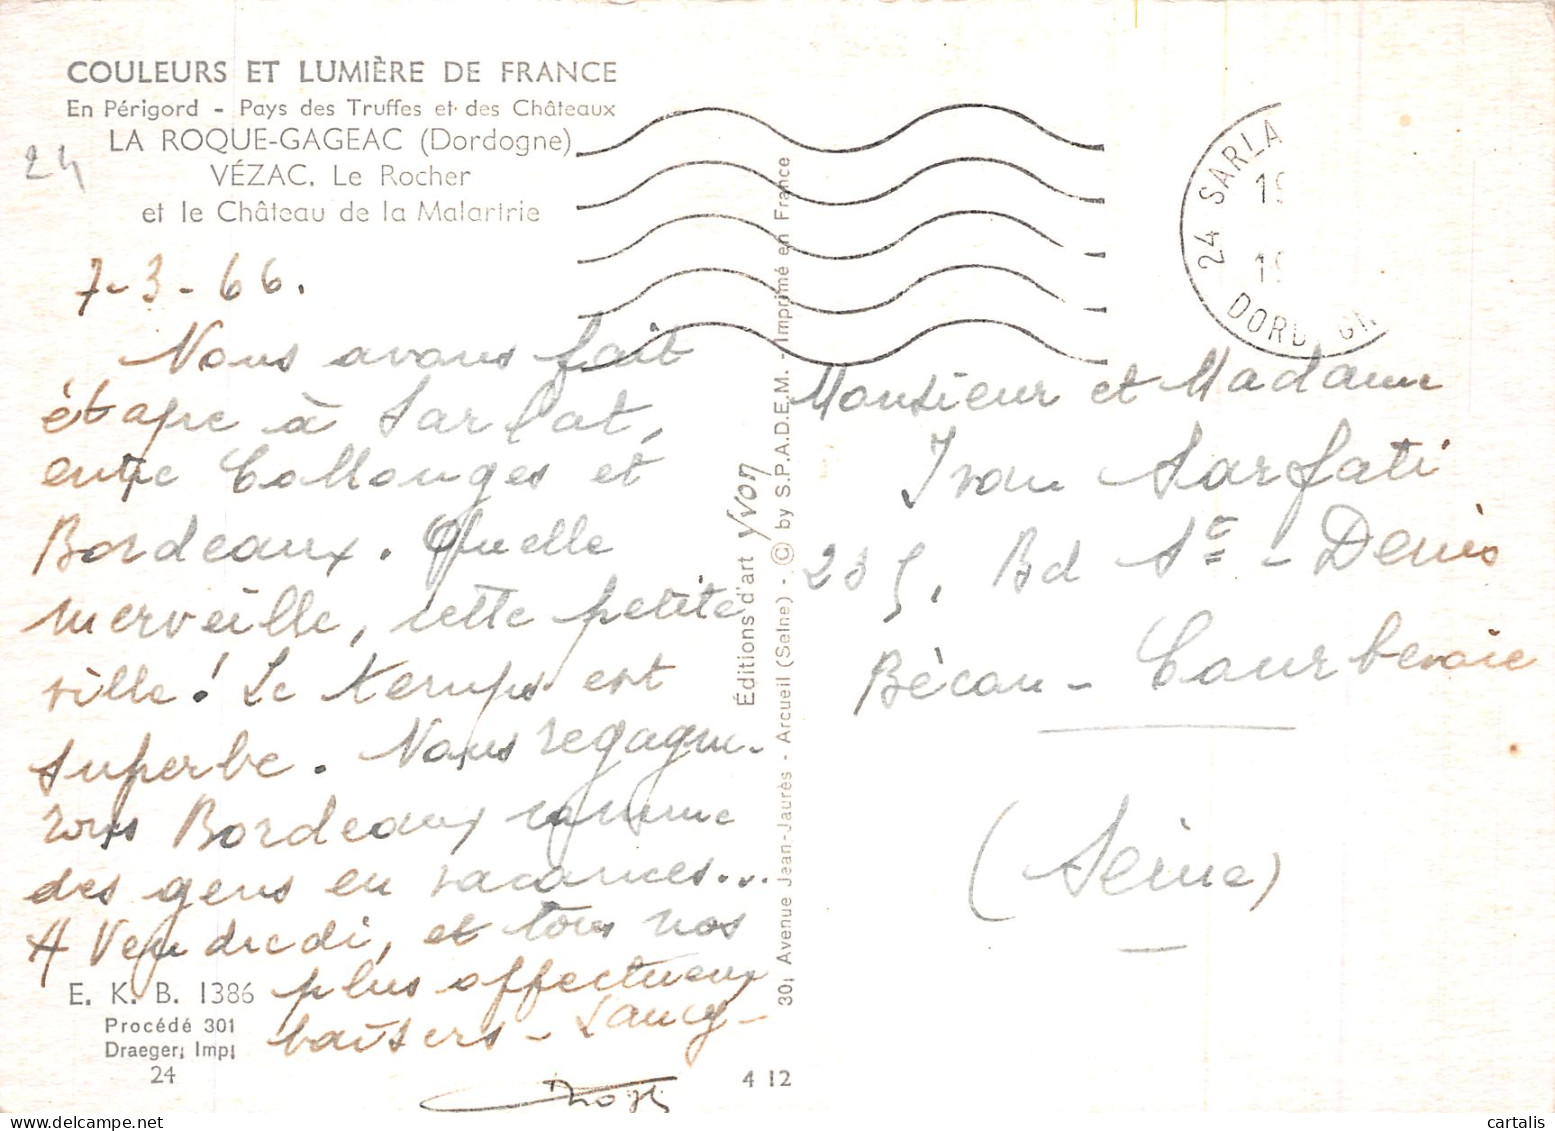 COULEURS ET LUMIÈRE DE FRANCE
En Périgord - Pays des Truffes et des Châteaux
LA ROQUE-GAGEAC (Dordogne)
VÉZAC. Le Rocher
et le Château de la Malartrie
24
7-3-66.
Nous avons fait
étape à Sarlat,
entre Collonges et
Bordeaux. Quelle
merveille, cette petite
ville! Le temps est
superbe. Nous regagne-
rons Bordeaux comme
des gens en vacances...
A Vendredi, et tous nos
plus affectueux
baisers -
E. K. B. 1386
Procédé 301
Draeger, Imp.
24
4 12
Éditions d'art yvon
30, Avenue Jean-Jaurès - Arcueil (Seine) - © by S.P.A.D.E.M. - Imprimé en France
24 SARLA
19
19
DORDOGN
Monsieur et Madame
Ivan Sarfati
235, Bd St-Denis
Bécon-Courbevoie
(Seine)